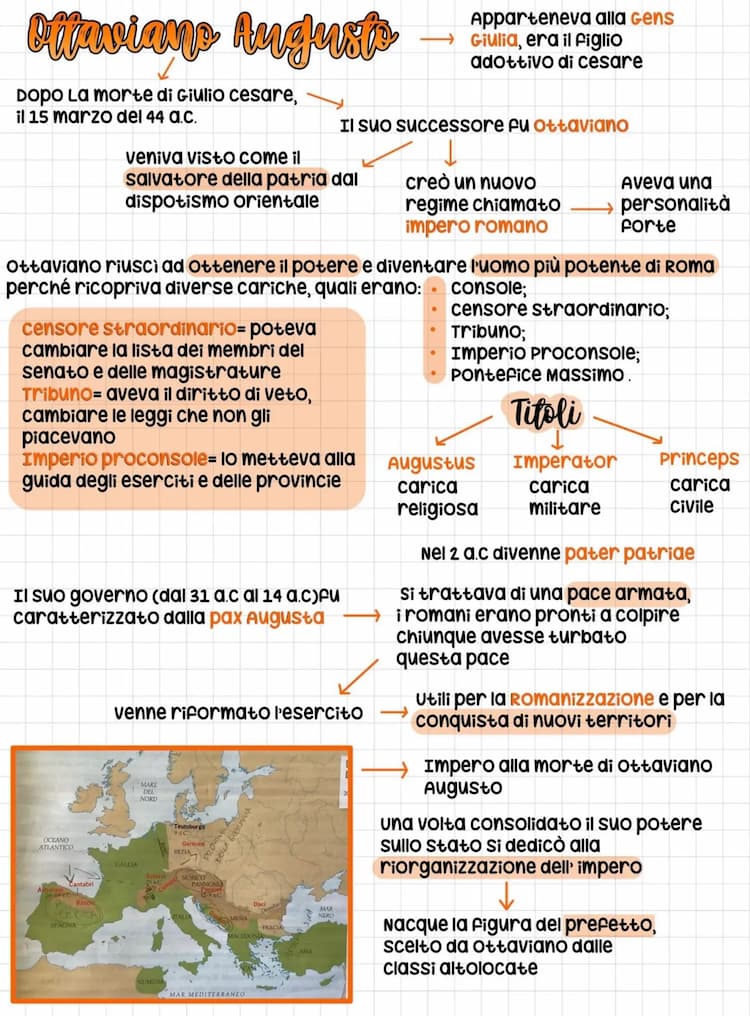 Ottaviano Augusto
Apparteneva alla Gens
Giulia, era il figlio
adottivo di cesare
Dopo La morte di Giulio Cesare,
il 15 marzo del 44 a.c.
Il suo successore fu Ottaviano
veniva visto come il
salvatore della patria dal
dispotismo orientale
creò un nuovo
regime chiamato
impero romano
Aveva una
personalità
forte
Ottaviano riuscì ad ottenere il potere e diventare l'uomo più potente di Roma
perché ricopriva diverse cariche, quali erano:
• console;
• censore straordinario;
• Tribuno;
• Imperio proconsole;
• Pontefice Massimo.
Censore straordinario= poteva
cambiare la lista dei membri del
senato e delle magistrature
Tribuno= aveva il diritto di veto,
cambiare le leggi che non gli
piacevano
Imperio proconsole= lo metteva alla
guida degli eserciti e delle provincie
Titoli
Augustus
carica
religiosa
Imperator
carica
militare
Princeps
carica
civile
Nel 2 a.c divenne pater patriae
Il suo governo (dal 31 a.c al 14 a.c)fu
caratterizzato dalla pax Augusta
si trattava di una pace armata,
i romani erano pronti a colpire
chiunque avesse turbato
questa pace
venne riformato l'esercito
utili per la Romanizzazione e per la
conquista di nuovi territori
Impero alla morte di Ottaviano
Augusto
una volta consolidato il suo potere
sullo stato si dedicò alla
riorganizzazione dell' impero
Nacque la figura del prefetto,
scelto da Ottaviano dalle
classi altolocate
MARE
DEL
NORD
OCEANO
ATLANTICO
Teutoburgo
Germani
REZIA
GALLIA
NORICO
PANNONIA
Cantabri
SPAGNA
ITALIA
Daci
MESIA
TRACIA
MACEDONIA
MAR
NERO
ASIA
NUMIDIA
MAR MEDITERRANEO